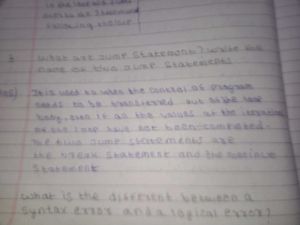 following
What are Jump Statement? Write the
name of two Jump Statements
It is used to when the control of program
needs to be transferred out of the loop
body, even if all the values of the iteration
of the loop have not been completed.
The two Jump statements are
the break statement and the continue
statement
What is the different between a
syntax error and a logical error?